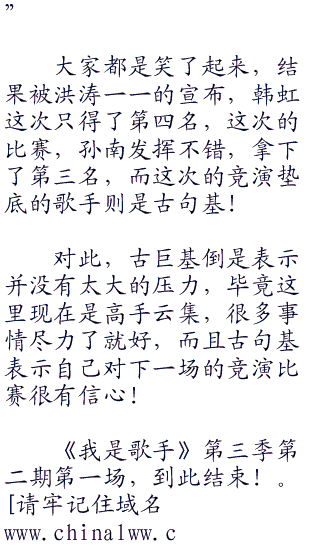 ”
大家都是笑了起来，结
果被洪涛一一的宣布，韩虹
这次只得了第四名，这次的
比赛，孙南发挥不错，拿下
了第三名，而这次的竞演垫
底的歌手则是古句基！
对此，古巨基倒是表示
并没有太大的压力，毕竟这
里现在是高手云集，很多事
情尽力了就好，而且古句基
表示自己对下一场的竞演比
赛很有信心！
《我是歌手》第三季第
二期第一场，到此结束！。
[请牢记住域名
www.china1ww.c